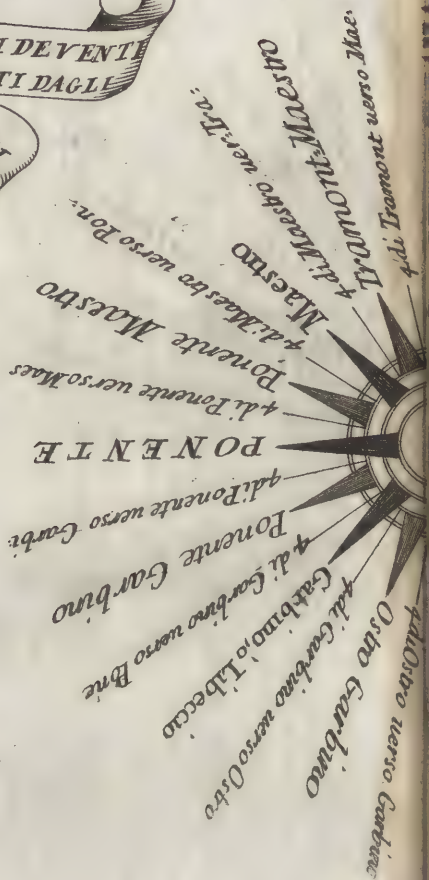 I DE VENTI
TI DAGLI
4 di Tramont uerso Mae:
Tramont: Maestro
4 di Maestro uer: Tra:
Maestro
4 di Maestro uerso Pon:
Ponente Maestro
4 di Ponente uerso Maes
PONENTE
4 di Ponente uerso Garbi:
Ponente Garbino
4 di Garbino uerso Pōnē
Garbino, o Libeccio
4 di Garbino uerso Ostro
Ostro Garbino
4 di Ostro uerso Garbino